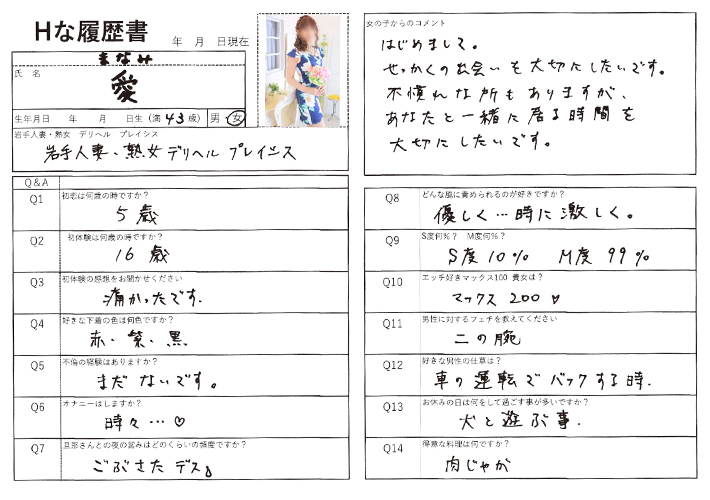 Hな履歴書
年 月 日現在
まなみ
氏 名
愛
生年月日 年 月 日生 (満 43 歳) 男・女
岩手人妻・熟女 デリヘル プレイシス
岩手人妻・熟女デリヘル プレイシス
女の子からのコメント
はじめまして。
せっかくの出会いを大切にしたいです。
不慣れな所もありますが、
あなたと一緒に居る時間を
大切にしたいです。
Q&A
Q1 初恋は何歳の時ですか?
5歳
Q2 初体験は何歳の時ですか?
16歳
Q3 初体験の感想をお聞かせください
痛かったです.
Q4 好きな下着の色は何色ですか?
赤・紫・黒
Q5 不倫の経験はありますか?
まだないです。
Q6 オナニーはしますか?
時々…♡
Q7 旦那さんとの夜の営みはどのくらいの頻度ですか?
ごぶさたデス。
Q8 どんな風に責められるのが好きですか?
優しく…時に激しく。
Q9 S度何%? M度何%?
S度10% M度99%
Q10 エッチ好きマックス100 貴女は?
マックス 200♡
Q11 男性に対するフェチを教えてください
二の腕
Q12 好きな男性の仕草は?
車の運転でバックする時.
Q13 お休みの日は何をして過ごす事が多いですか?
犬と遊ぶ事.
Q14 得意な料理は何ですか?
肉じゃが